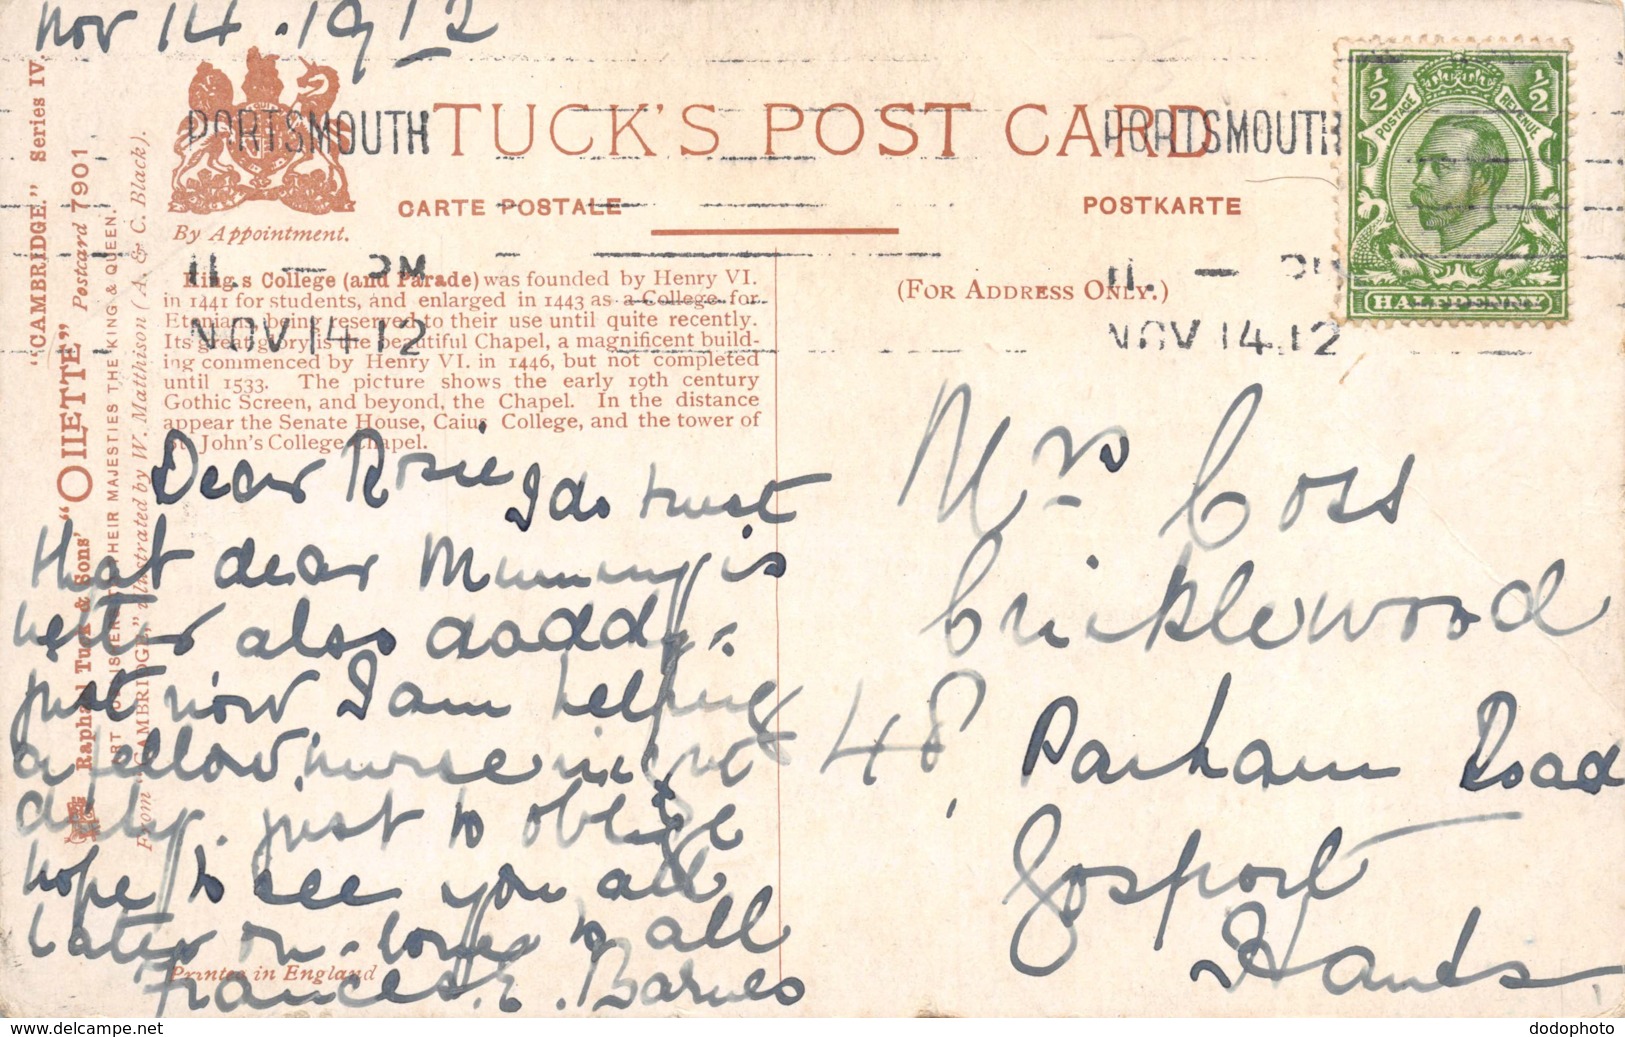 Nov 14 . 1912
"CAMBRIDGE." Series IV.
Raphael Tuck & Sons' "OILETTE" Postcard 7901
ART PUBLISHERS TO THEIR MAJESTIES THE KING & QUEEN.
From "CAMBRIDGE," illustrated by W. Matthison (A. & C. Black).
By Appointment.
TUCK'S POST CARD
CARTE POSTALE
POSTKARTE
PORTSMOUTH
11. — PM
NOV 14.12
PORTSMOUTH
11. — PM
NOV 14.12
½ ½
POSTAGE REVENUE
HALFPENNY
King's College (and Parade) was founded by Henry VI.
in 1441 for students, and enlarged in 1443 as a College for
Etonians being reserved to their use until quite recently.
Its great glory is the beautiful Chapel, a magnificent build-
ing commenced by Henry VI. in 1446, but not completed
until 1533. The picture shows the early 19th century
Gothic Screen, and beyond, the Chapel. In the distance
appear the Senate House, Caius College, and the tower of
St. John's College Chapel.
(FOR ADDRESS ONLY.)
Dear Rosie I do trust
that dear Mummy is
better also daddy.
just now I am helping
a fellow nurse night
duty. just to oblige
hope to see you all
later on. love to all
Frances. E. Barnes
Printed in England
Mrs Coss
Cricklewood
48, Parham Road
Gosport
Hants
dodophoto
www.delcampe.net